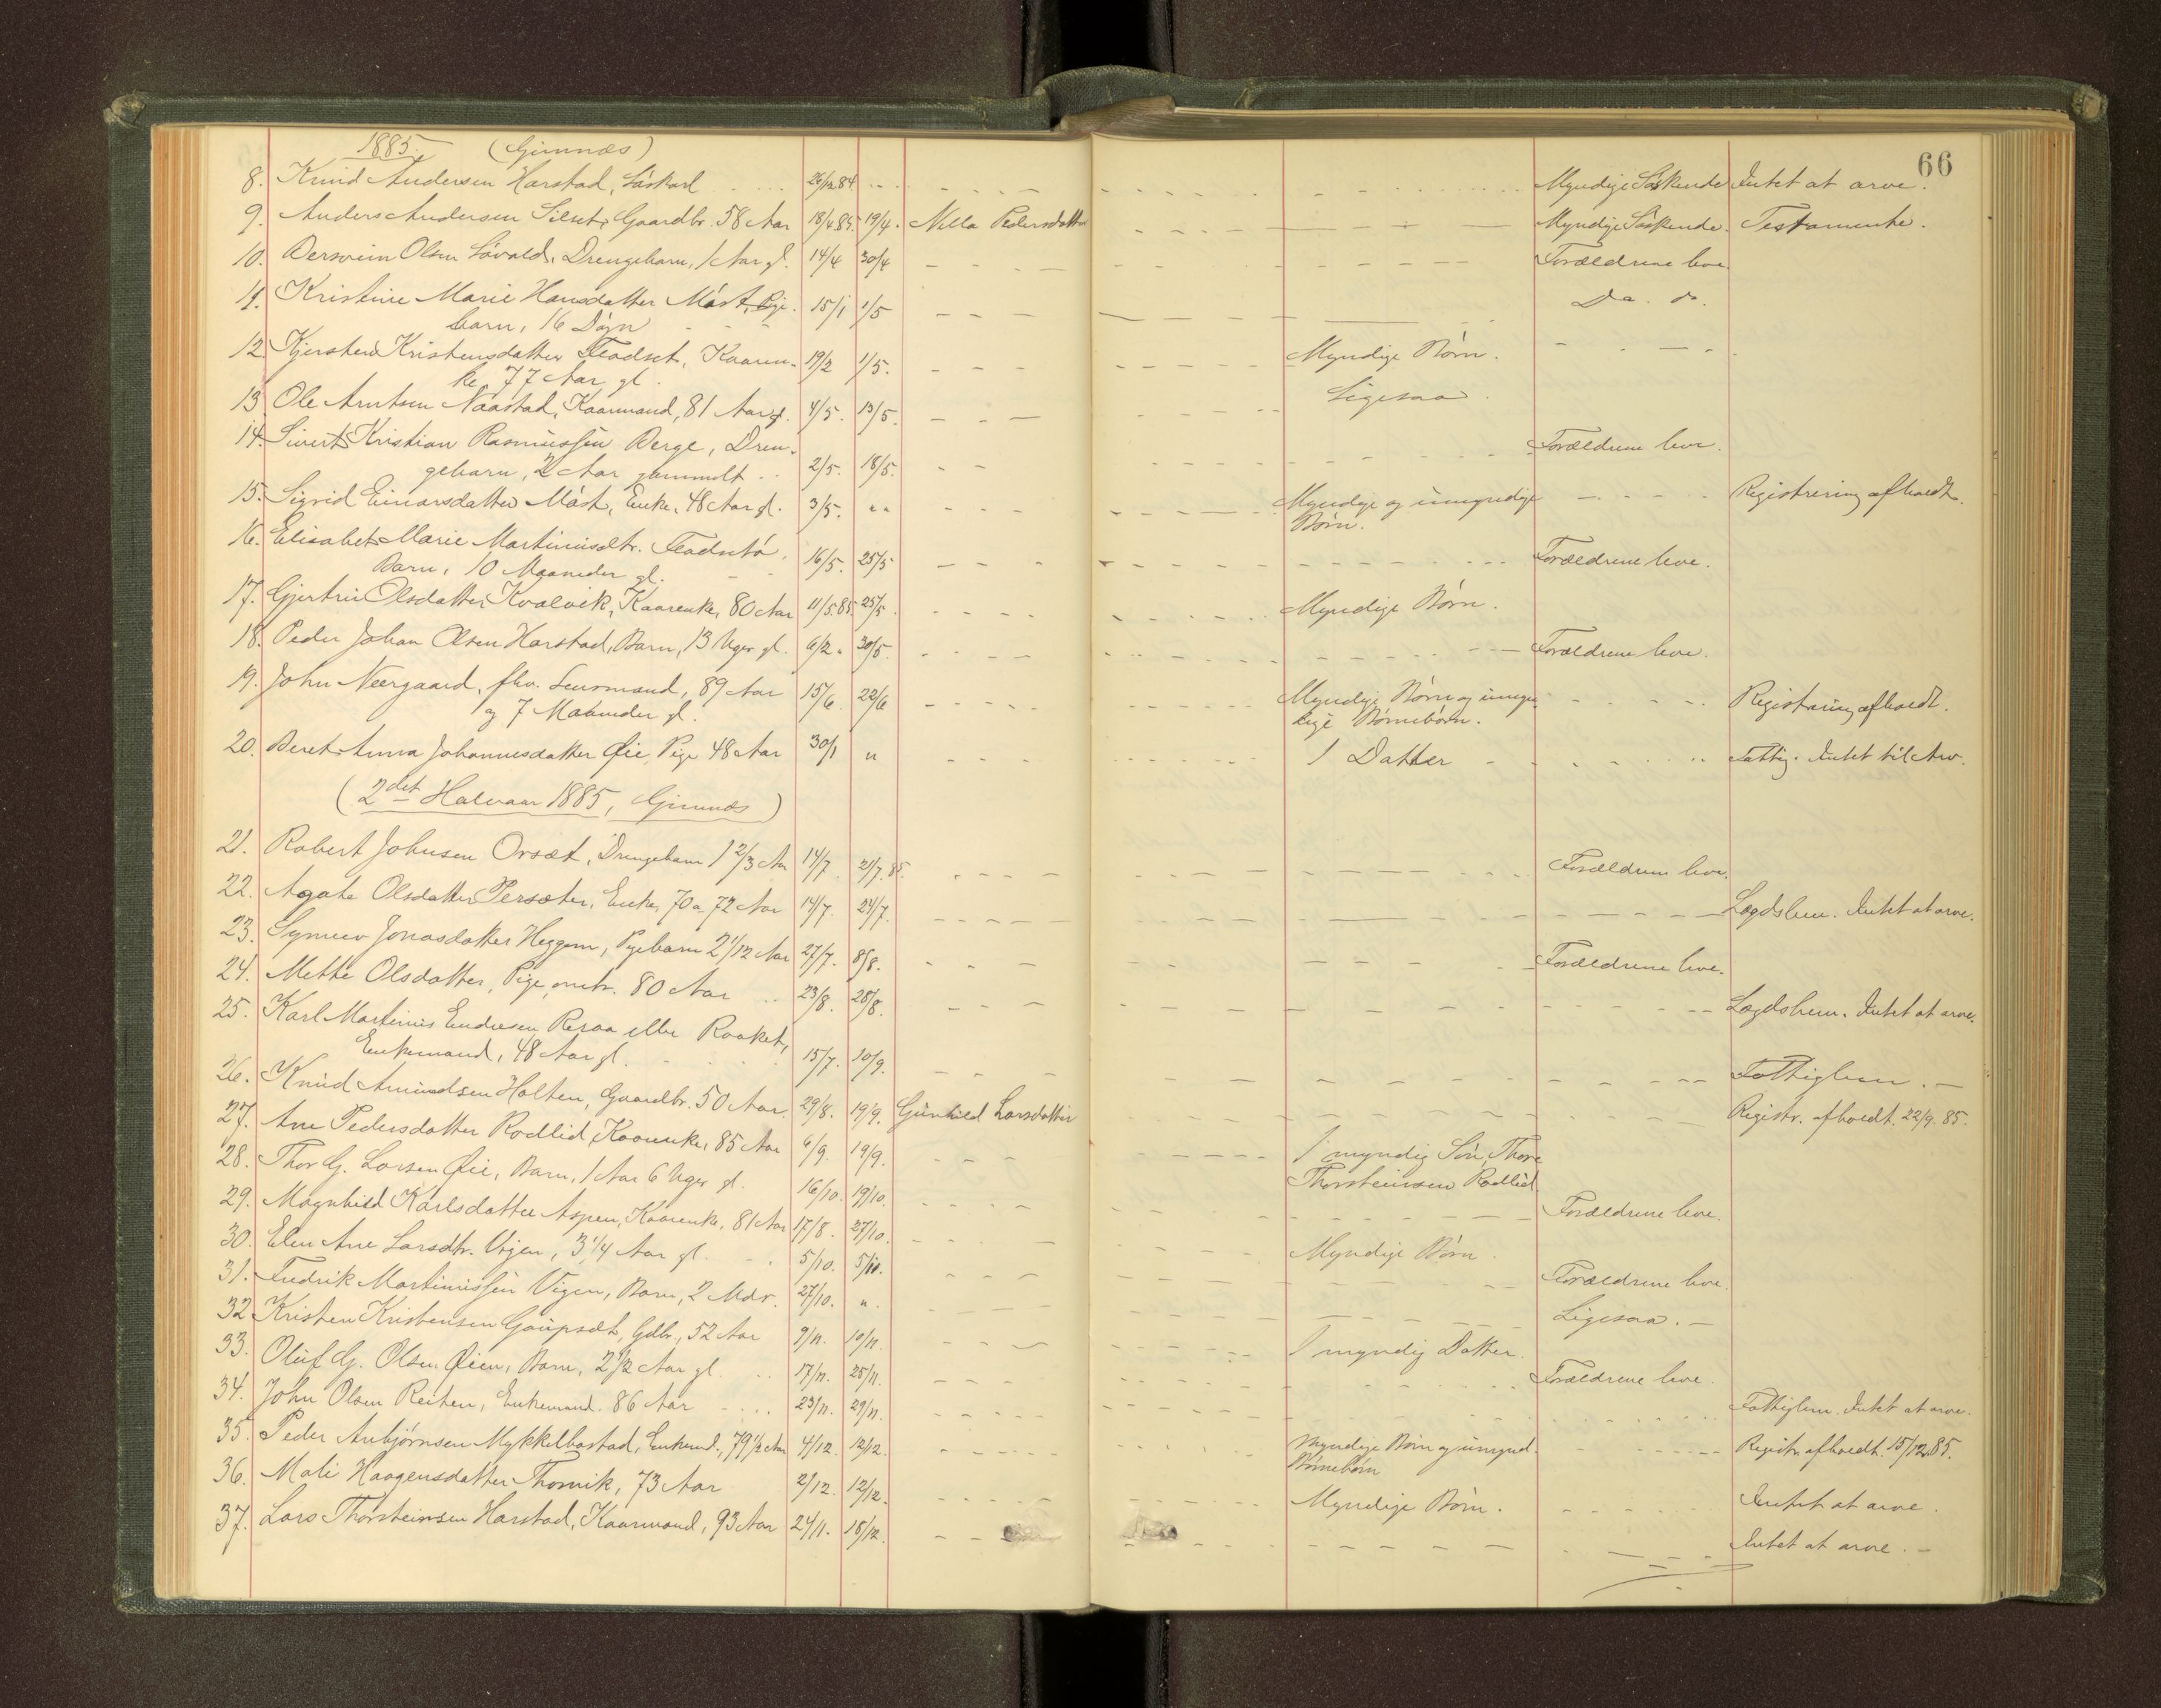 66
1885. (Gimnæs)
8. Knud Andersen Harstad, Løskarl 26/12 84 " Myndige Søskende Intet at arve.
9. Anders Andersen Silset, Gaardbr. 58 Aar 18/4 85. 19/4. Nella Pedersdatter Myndige Søskende. Testamente.
10. Bersvein Olsen Løvold, Drengebarn, 1 Aar gl. 14/4 30/4 Forældrene leve.
11. Kristine Marie Hansdatter Møst, Pige- 15/1 1/5 Do. do.
barn, 16 Døgn
12. Kjersten Kristensdatter Flodset, Kaaren- 19/2 1/5. Myndige Børn.
ke, 77 Aar gl.
13. Ole Arntsen Naastad, Kaarmand, 81 Aar gl. 4/5. 13/5. Ligesaa.
14. Sivert Kristian Rasmussen Berge, Dren- Forældrene leve.
gebarn, 2 Aar gammelt 2/5. 18/5.
15. Sigrid Einarsdatter Møst, Enke, 48 Aar gl. 3/5. " Myndige og umyndige Registrering afholdt.
Børn.
16. Elisabet Marie Martinusdtr. Flodsetø, 16/5. 25/5 Forældrene leve.
Barn, 10 Maaneder gl.
17. Gjertru Olsdatter Kvalvik, Kaarenke, 80 Aar 11/5 85. 25/5. Myndige Børn.
18. Peder Johan Olsen Harstad, Barn, 13 Uger gl. 6/2. 30/5. Forældrene leve.
19. John Neergaard, fhv. Lensmand, 89 Aar 15/6. 22/6 Myndige Børn og umyn- Registrering afholdt.
og 7 Maaneder gl. dige Børnebørn.
20. Beret Anna Johannesdatter Øie, Pige 48 Aar 30/1 " 1 Datter Fattig. Intet til Arv.
(2det Halvaar 1885, Gimnæs)
21. Robert Johnsen Orset, Drengebarn 1 2/3 Aar 14/7. 21/7. 85. Forældrene leve.
22. Agate Olsdatter Persæter, Enke, 70 a 72 Aar 14/7. 24/7. Lægdslem. Intet at arve.
23. Synnev Jonasdatter Heggem, Pigebarn 2 1/12 Aar 27/7. 8/8. Forældrene leve.
24. Mette Olsdatter, Pige, omtr. 80 Aar 23/8. 28/8. Lægdslem. Intet at arve.
25. Karl Martinus Endresen Resaa eller Raaket,
Enkemand, 48 Aar gl. 15/7. 10/9. Fattiglem.
26. Knud Amundsen Holten, Gaardbr. 50 Aar. 29/8. 19/9. Gunhild Larsdatter Registr. afholdt. 22/9. 85.
27. Ane Pedersdatter Rødlid, Kaarenke, 85 Aar 6/9. 19/9. 1 myndig Søn, Thore
Thorsteinsen Rødlid.
28. Thor G. Larsen Øie, Barn, 1 Aar 6 Uger gl. 16/10. 19/10. Forældrene leve.
29. Magnhild Karlsdatter Aspen, Kaarenke, 81 Aar 17/8. 27/10. Myndige Børn.
30. Elen Ane Larsdtr. Vigen, 3 1/4 Aar gl. 5/10. 5/11. Forældrene leve.
31. Fredrik Martinussen Vigen, Barn, 2 Mdr. 27/10. " Ligesaa.
32 Kristen Kristensen Gaupset, Gdbr., 52 Aar 9/11. 10/11. 1 myndig Datter.
33. Oluf G. Olsen Øien, Barn, 2 1/2 Aar gl. 17/11. 25/11. Forældrene leve.
34. John Olsen Reiten, Enkemand. 86 Aar 23/11. 29/11. Fattiglem. Intet at arve.
35. Peder Anbjørnsen Mykkelbostad, Enkemd., 79 1/2 Aar 4/12. 12/12. Myndige Børn og umynd. Registr. afholdt. 15/12 85.
Børnebørn
36. Mali Haagensdatter Thorvik, 73 Aar 2/12. 12/12. Myndige Børn. Intet at arve.
37. Lars Thorsteinsen Harstad, Kaarmand, 93 Aar 24/11. 18/12. Intet at arve.